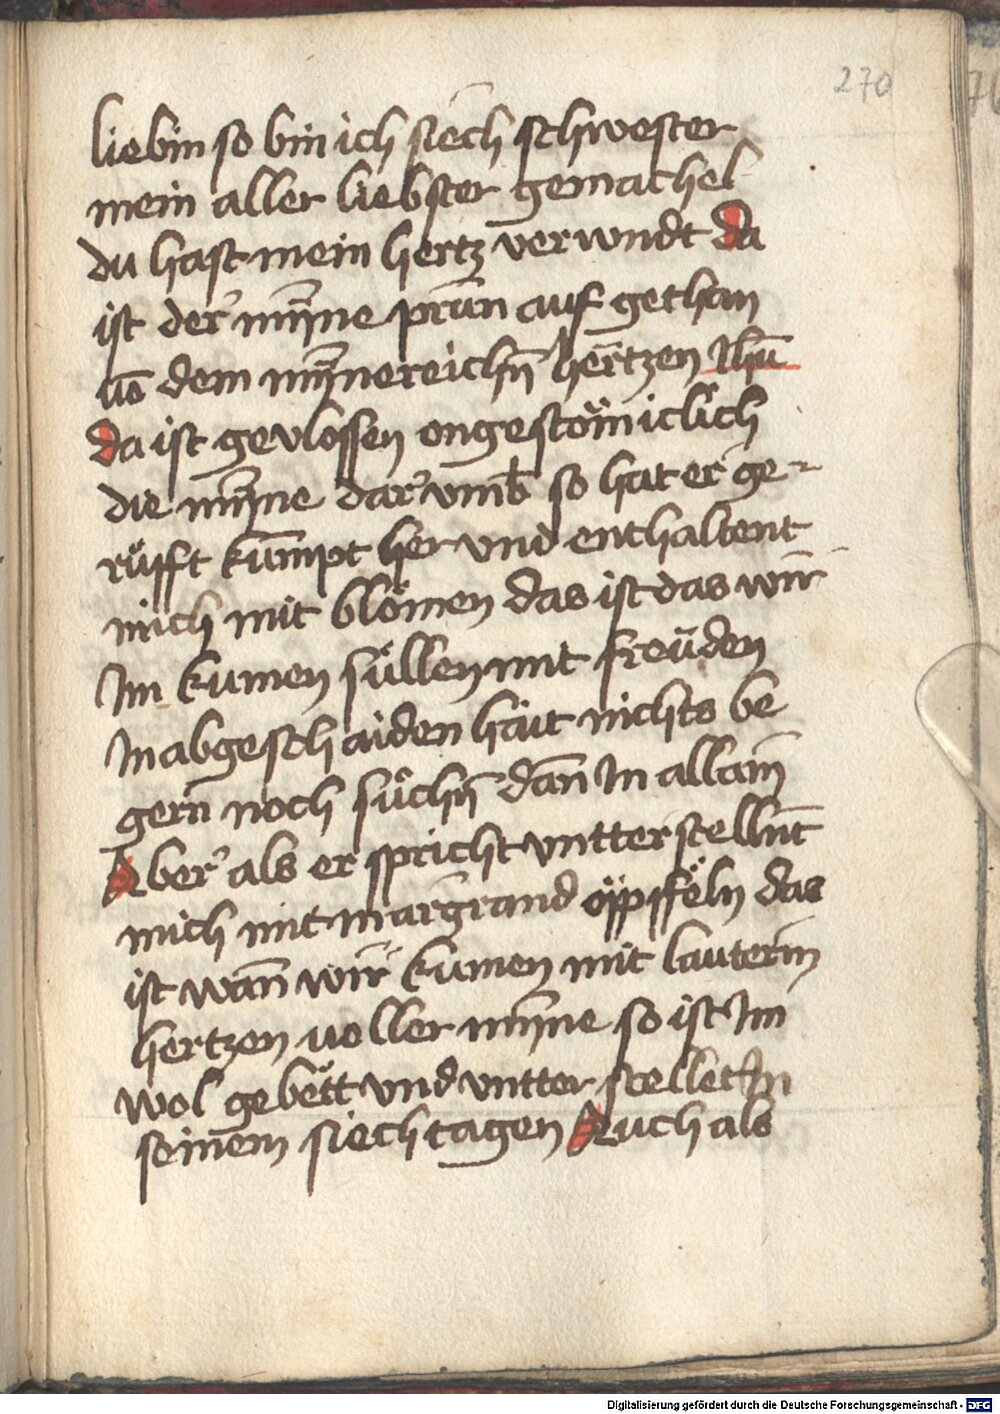 270
liebin so bin ich siech schwester
mein aller liebster gemachel
du hast mein hertz verwndt da
ist der mỹne prūn auf gethan
vō dem mỹnereichn̄ hertzen Jhū
da ist gevlossen ongestöm̄iclich
die mỹne dar vmb so hat er ge-
rüfft kūmpt her vnd enthaltent
mich mit blömen das ist das wir
Im kumen süllen mit freüden
In abgeschaiden häit nichts be
gern̄ noch süchn̄ dan̄ In allain
Aber als er spricht vntterstelln̄t
mich mit margrand öpffeln das
ist wan̄ wir kumen mit lauterm
hertzen voller mỹne so ist Im
wol gebett vnd vntter stellet In
seinem siechtagen Auch als
Digitalisierung gefördert durch die Deutsche Forschungsgemeinschaft - DFG